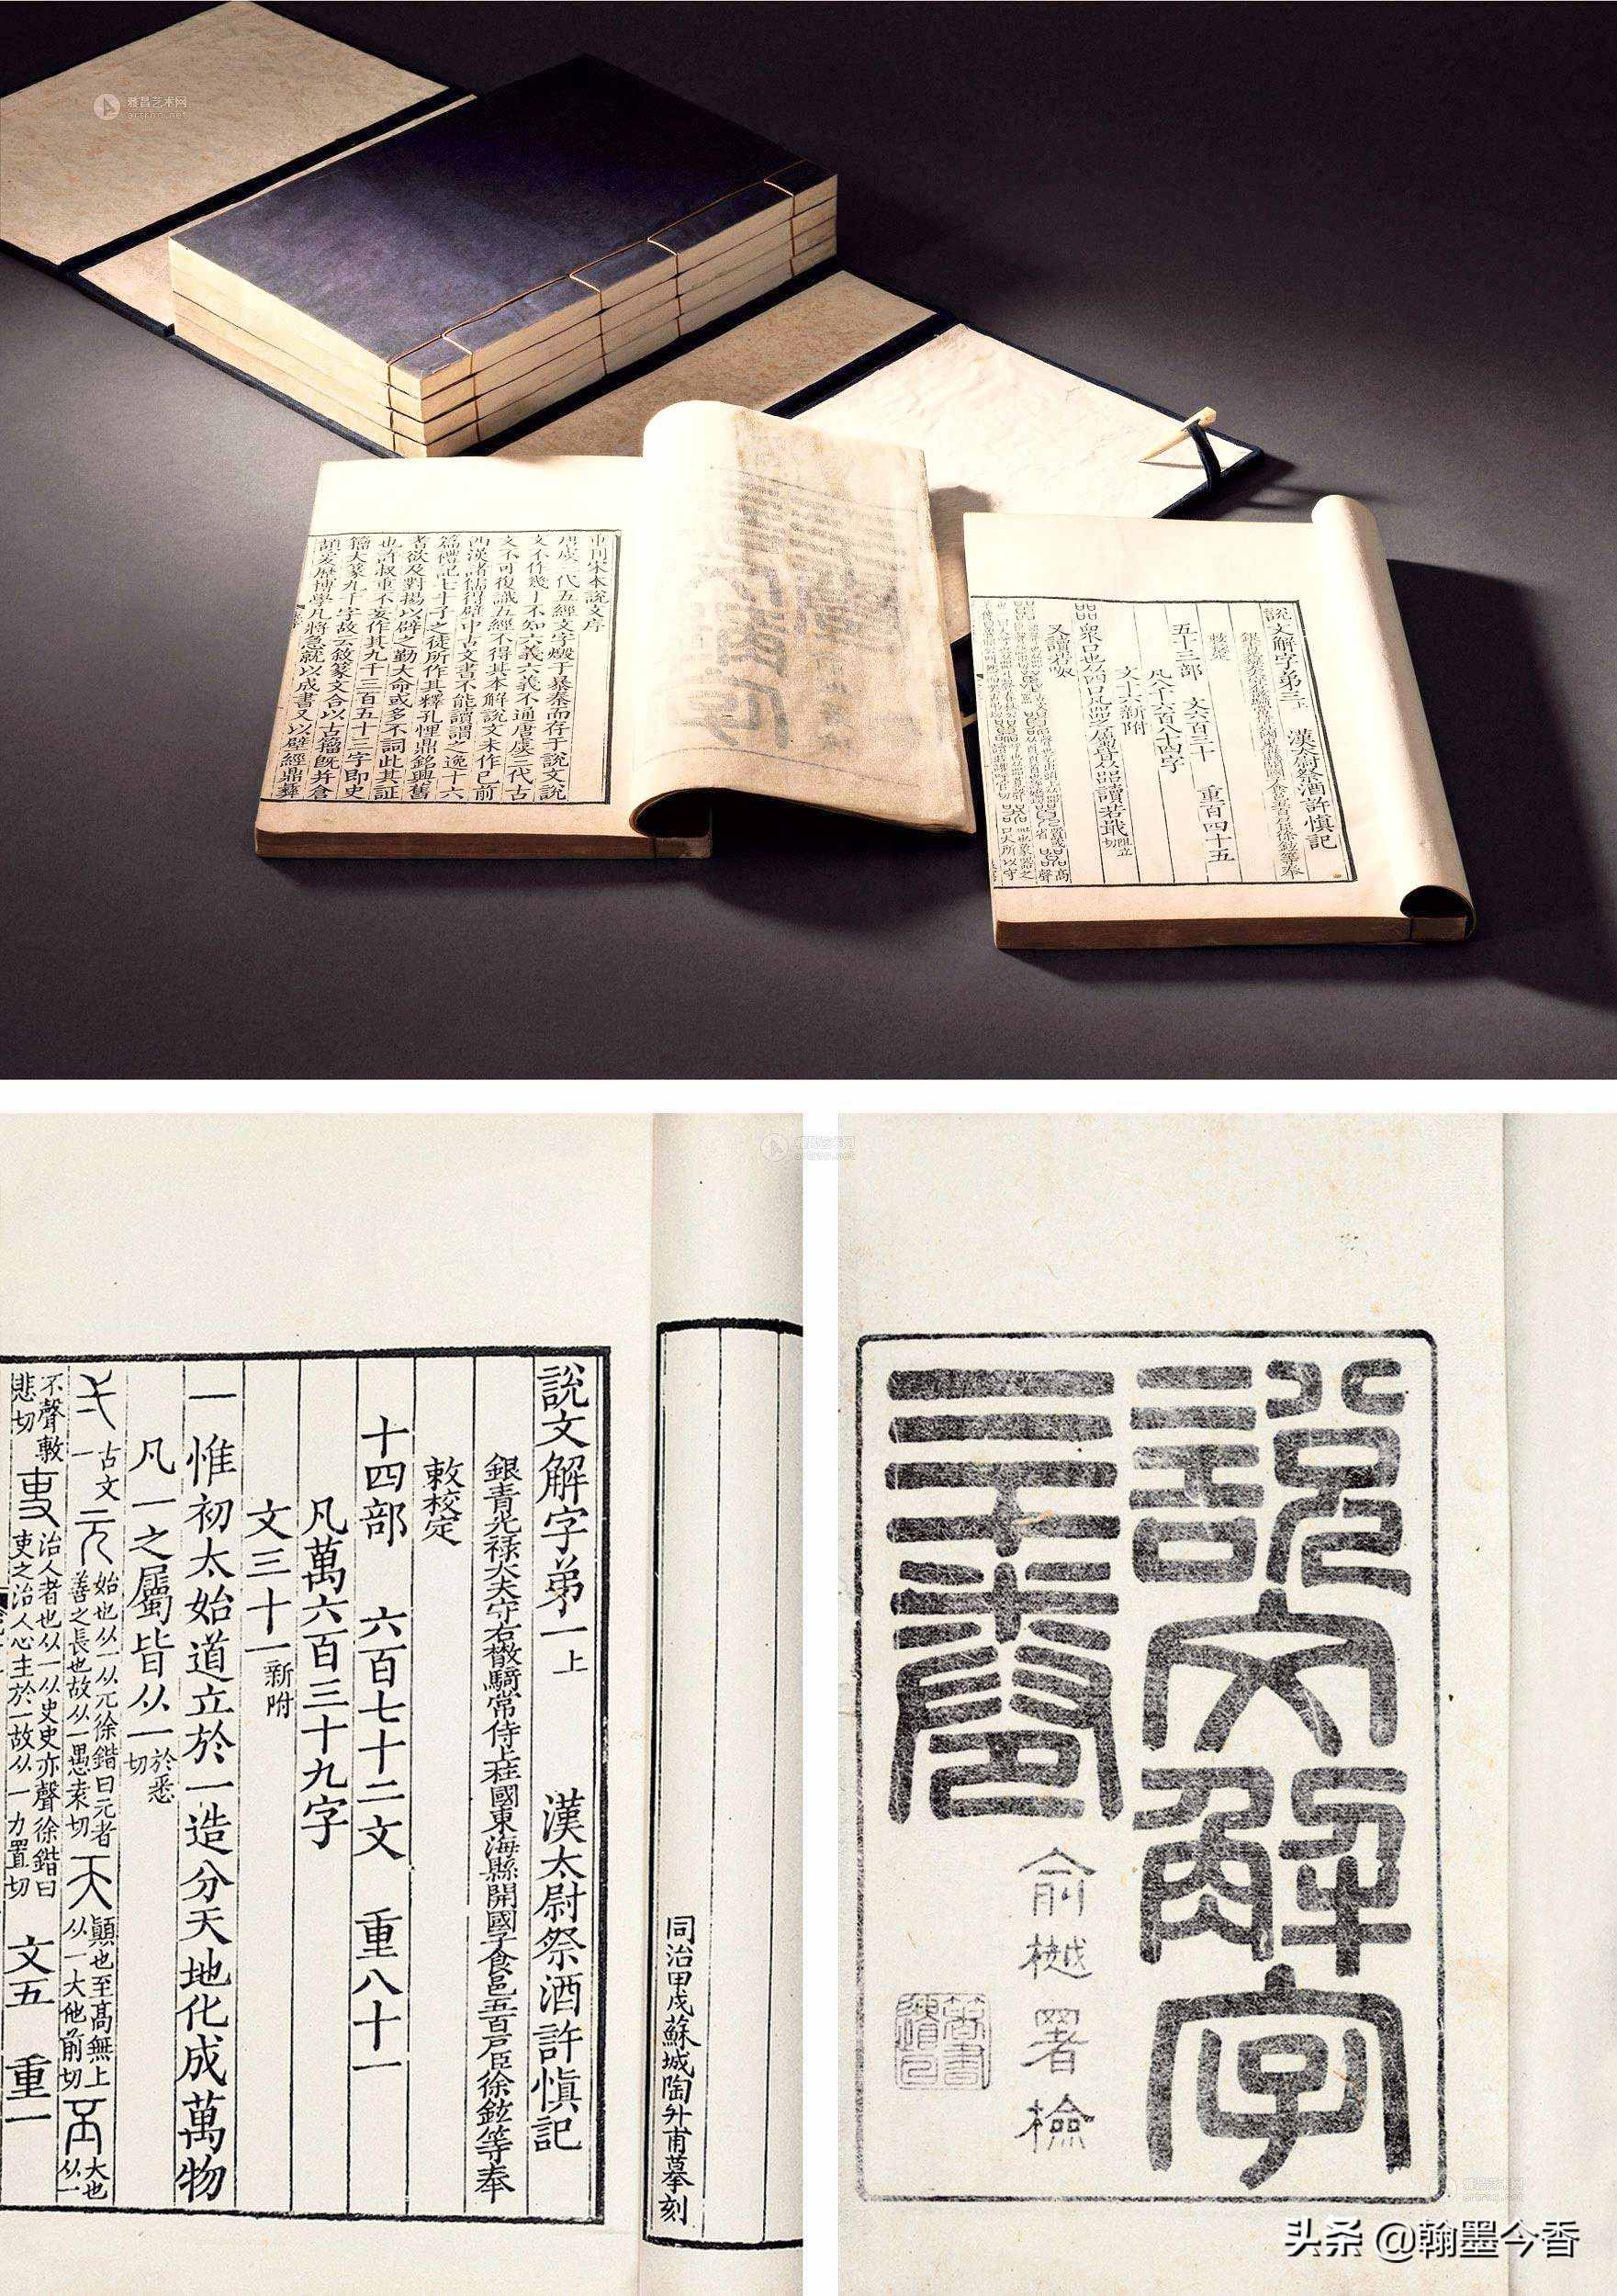 雅昌艺术网
artron.net
重刊宋本說文序
唐虞三代五經文字燬于暴秦而存于說文說
文不作幾于不知六義六義不通唐虞三代古
文不可復識五經不得其本解說文未作已前
西漢諸儒得壁中古文書不能讀謂之逸十六
篇禮記七十子之徒所作其釋孔悝鼎銘興舊
耆欲及對揚以辟之勤大命或多不詞此其証
也許叔重不妄作其九千三百五十三字即史
籒大篆九千字故云敘篆文合以古籒既并倉
頡爰歷博學凡將急就以成書又以壁經鼎彝
說文解字弟三上 漢太尉祭酒許慎記
敕校定
五十三部 文六百三十 重百四十五
凡八千六百八十四字
文十六新附
㗊眾口也从四口凡㗊之屬皆从㗊讀若戢阻立切
又讀若呶
說文解字弟一上 漢太尉祭酒許慎記
銀青光祿大夫守右散騎常侍上柱國東海縣開國子食邑五百戶臣徐鉉等奉
敕校定
十四部 六百七十二文 重八十一
凡萬六百三十九字
文三十一新附
一惟初太始道立於一造分天地化成萬物
凡一之屬皆从一於悉切
弌古文一 元始也从一从兀徐鍇曰元者善之長也故从一愚袁切 天顚也至高無上从一大他前切 丕大也从一
不聲敷悲切 吏治人者也从一从史史亦聲徐鍇曰吏之治人心主於一故从一力置切 文五 重一
同治甲戌蘇城陶升甫摹刻
說文解字
三十卷
俞樾署檢
头条 @翰墨今香